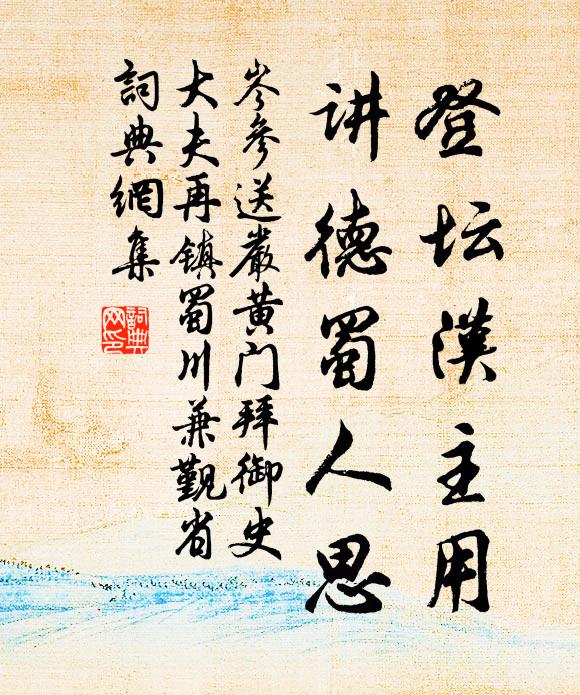 登坛漢主用
讲德蜀人思
岑參送嚴黄门拜御史
大夫再镇蜀川兼觐省
詞典網集
詞典
网印